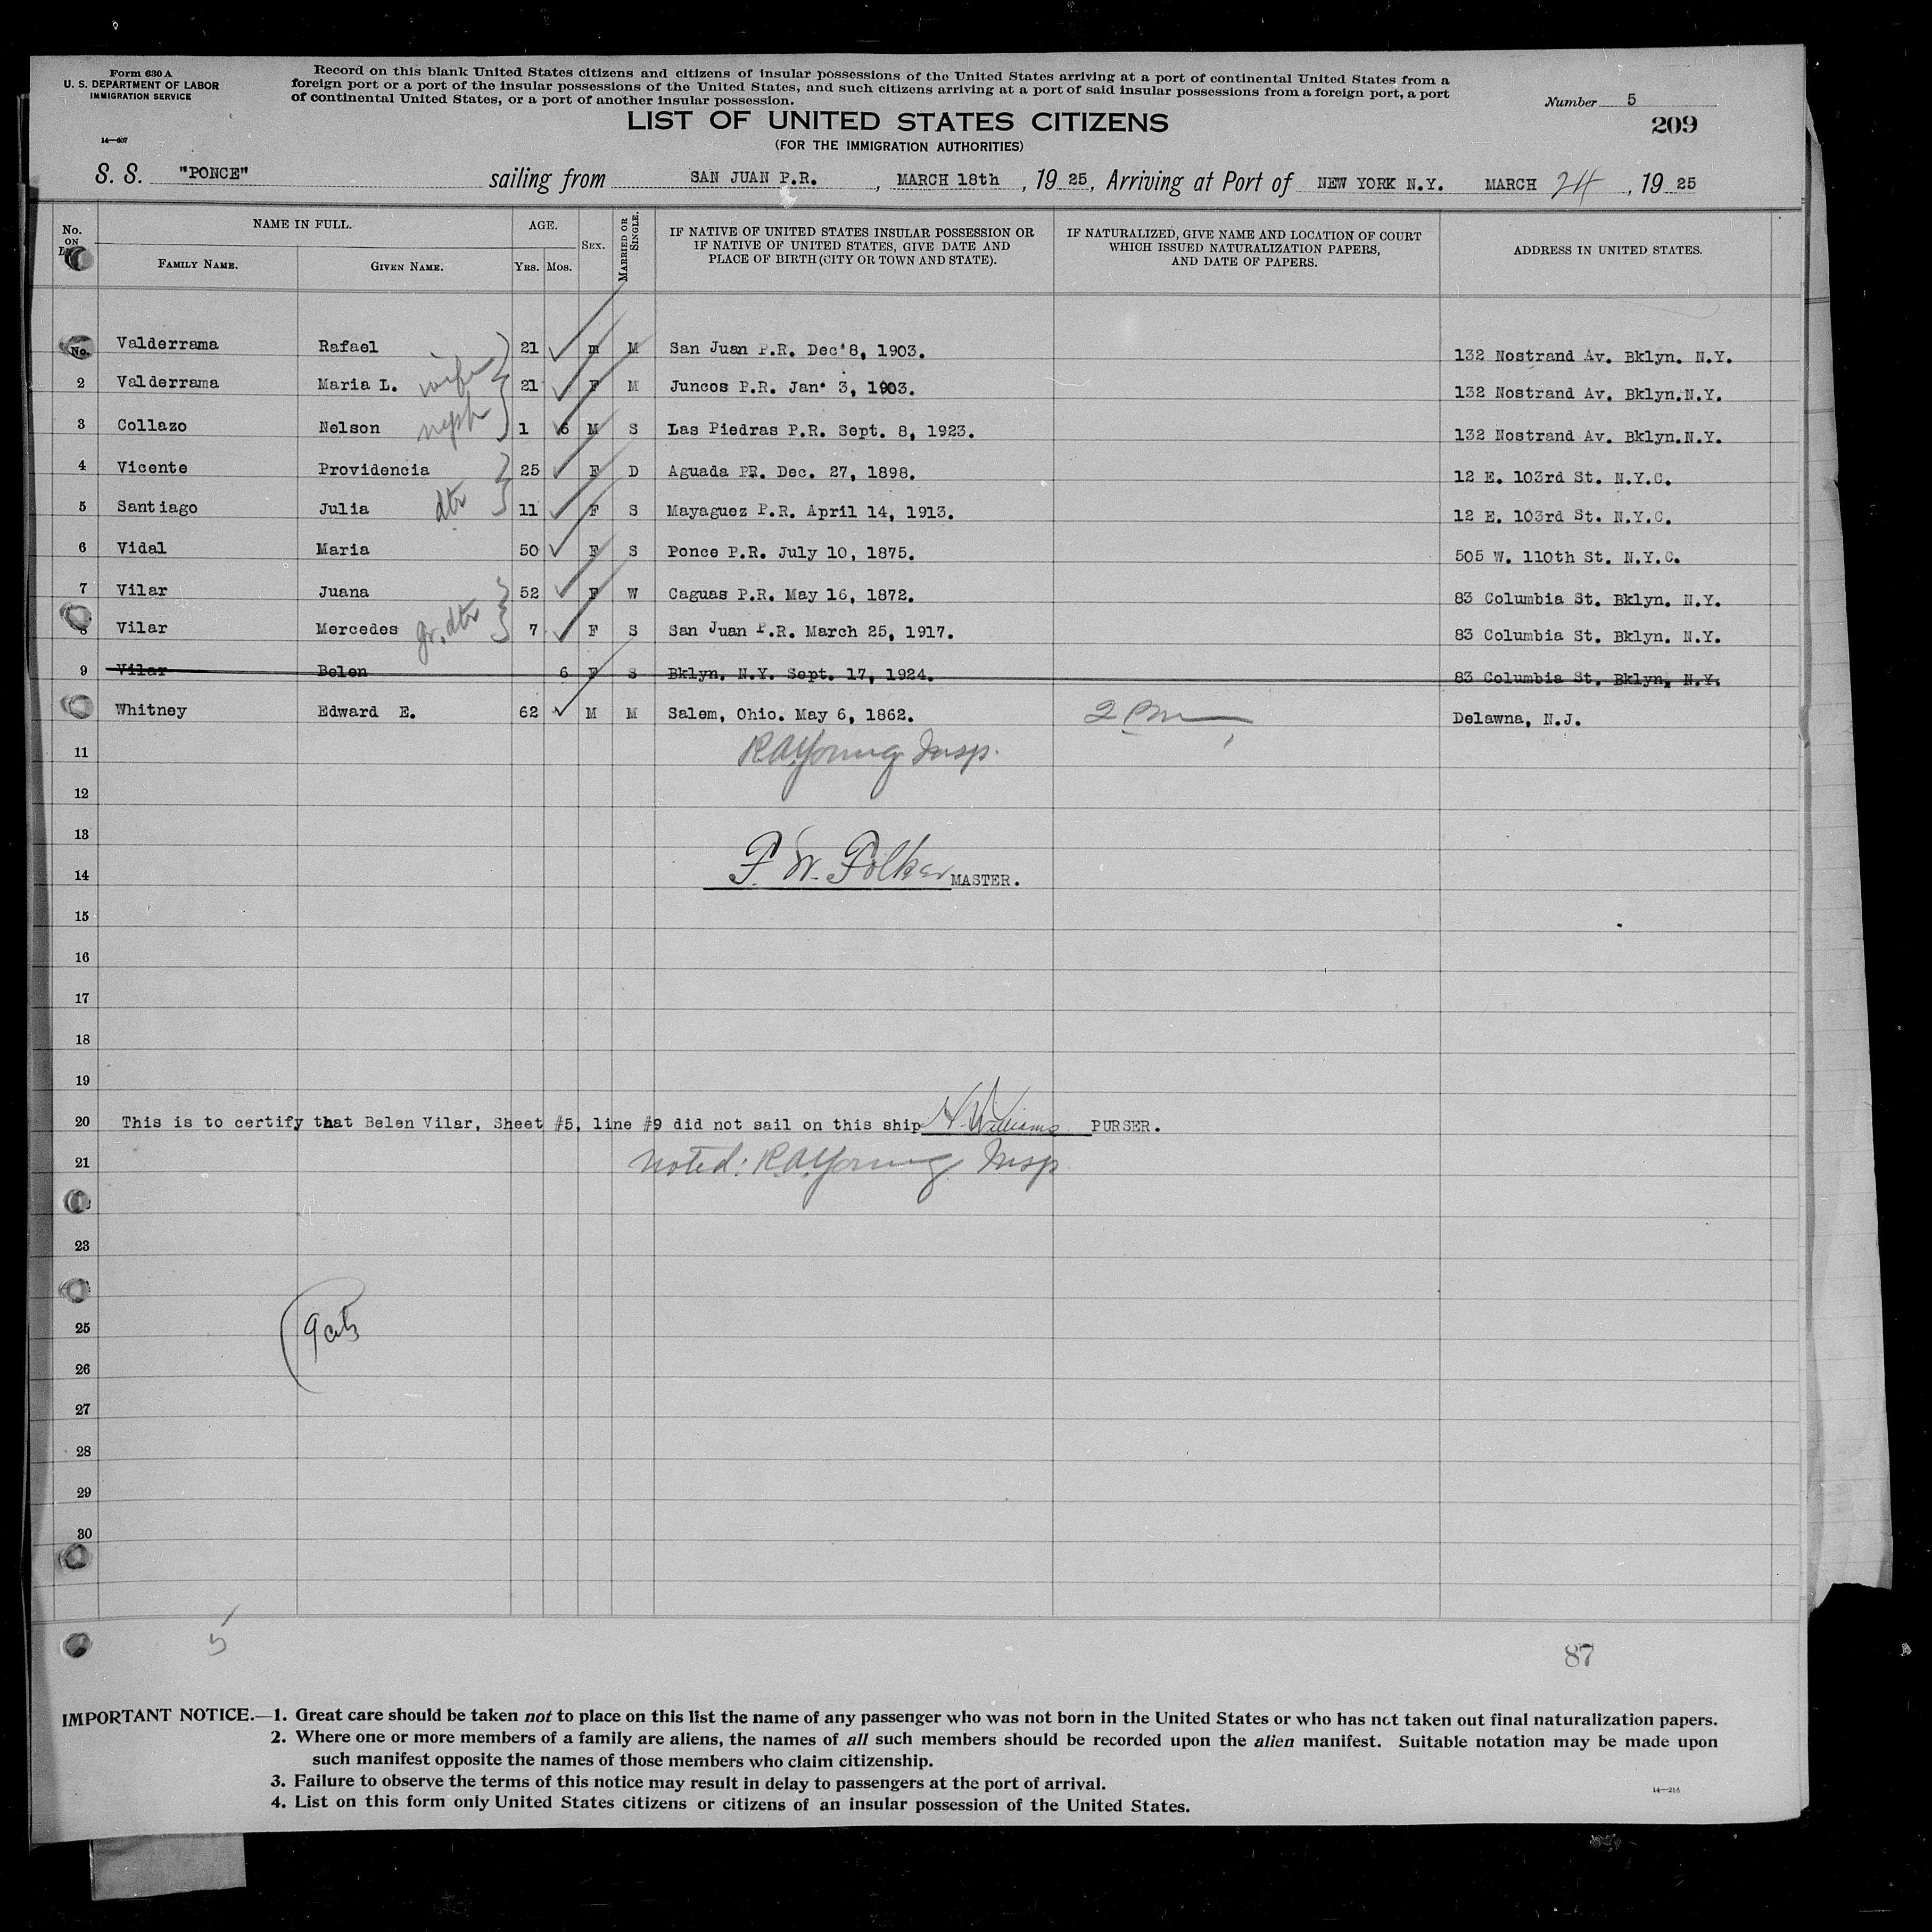 Form 630 A
U. S. DEPARTMENT OF LABOR
IMMIGRATION SERVICE
14—607
Record on this blank United States citizens and citizens of insular possessions of the United States arriving at a port of continental United States from a
foreign port or a port of the insular possessions of the United States, and such citizens arriving at a port of said insular possessions from a foreign port, a port
of continental United States, or a port of another insular possession.
Number 5
209
LIST OF UNITED STATES CITIZENS
(FOR THE IMMIGRATION AUTHORITIES)
S. S. "PONCE" sailing from SAN JUAN P.R., MARCH 18th, 1925, Arriving at Port of NEW YORK N.Y. MARCH 24, 1925
No. ON
NAME IN FULL.
FAMILY NAME.
GIVEN NAME.
AGE.
YRS. MOS.
SEX.
MARRIED OR SINGLE.
IF NATIVE OF UNITED STATES INSULAR POSSESSION OR
IF NATIVE OF UNITED STATES, GIVE DATE AND
PLACE OF BIRTH (CITY OR TOWN AND STATE).
IF NATURALIZED, GIVE NAME AND LOCATION OF COURT
WHICH ISSUED NATURALIZATION PAPERS,
AND DATE OF PAPERS.
ADDRESS IN UNITED STATES.
No. Valderrama Rafael 21 m M San Juan P.R. Dec 8, 1903. 132 Nostrand Av. Bklyn. N.Y.
2 Valderrama Maria L. wife 21 F M Juncos P.R. Jan. 3, 1903. 132 Nostrand Av. Bklyn.N.Y.
3 Collazo Nelson neph 1 6 M S Las Piedras P.R. Sept. 8, 1923. 132 Nostrand Av. Bklyn.N.Y.
4 Vicente Providencia 25 F D Aguada PR. Dec. 27, 1898. 12 E. 103rd St. N.Y.C.
5 Santiago Julia dtr 11 F S Mayaguez P.R. April 14, 1913. 12 E. 103rd St. N.Y.C.
6 Vidal Maria 50 F S Ponce P.R. July 10, 1875. 505 W. 110th St. N.Y.C.
7 Vilar Juana 52 F W Caguas P.R. May 16, 1872. 83 Columbia St. Bklyn. N.Y.
8 Vilar Mercedes gr. dtr 7 F S San Juan P.R. March 25, 1917. 83 Columbia St. Bklyn. N.Y.
9 Vilar Belen 6 F S Bklyn. N.Y. Sept. 17, 1924. 83 Columbia St. Bklyn, N.Y.
Whitney Edward E. 62 M M Salem, Ohio. May 6, 1862. Delawna, N.J.
11 R A Young Insp.
12
13
14 MASTER.
15
16
17
18
19
20 This is to certify that Belen Vilar, Sheet #5, line #9 did not sail on this ship H. Williams PURSER.
21 noted: R A Young Insp
23
25
26
27
28
29
30
5
87
IMPORTANT NOTICE.—1. Great care should be taken not to place on this list the name of any passenger who was not born in the United States or who has not taken out final naturalization papers.
2. Where one or more members of a family are aliens, the names of all such members should be recorded upon the alien manifest. Suitable notation may be made upon
such manifest opposite the names of those members who claim citizenship.
3. Failure to observe the terms of this notice may result in delay to passengers at the port of arrival.
4. List on this form only United States citizens or citizens of an insular possession of the United States.
14—216